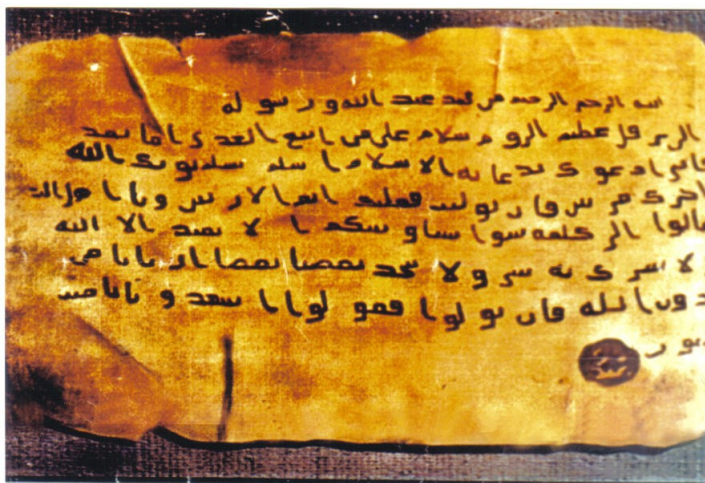 الله الرحمن الرحيم من محمد عبد الله ورسوله
الى هرقل عظيم الروم سلام على من اتبع الهدى اما بعد
فانى ادعوك بدعاية الاسلام اسلم تسلم يوتك الله
اجرك مرتين فان توليت فعليك اثم الاريسين ويا اهل
تعالوا الى كلمة سوا بيننا وبينكم الا نعبد الا الله
ولا نشرك به شى ولا يتخذ بعضنا بعضا اربابا من
دون الله فان تولوا فقولوا اشهدو بانا